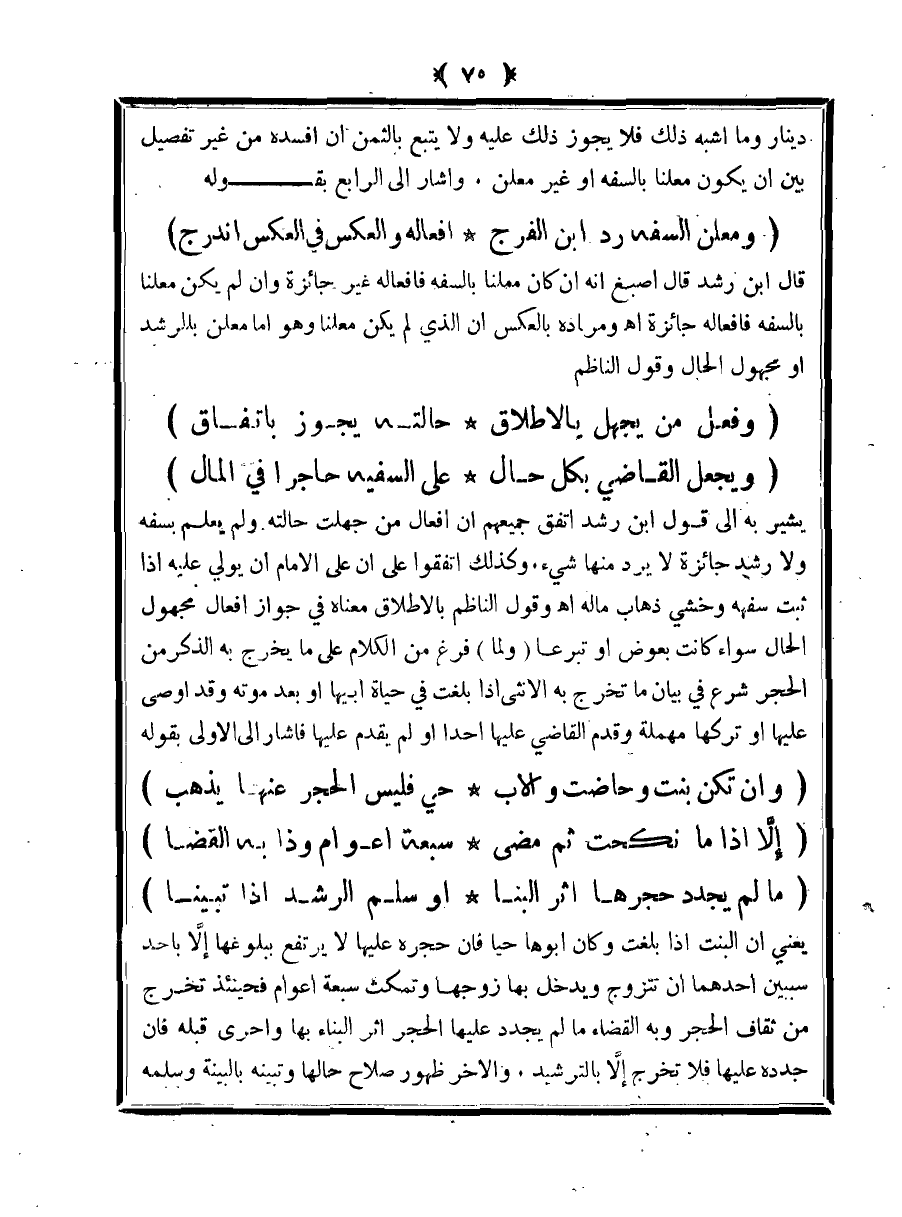 ﴿ ٧٥ ﴾
دينار وما اشبه ذلك فلا يجوز ذلك عليه ولا يتبع بالثمن ان افسده من غير تفصيل
بين ان يكون معلنا بالسفه او غير معلن ٠ واشار الى الرابع بقـــــوله
( ومعلن السفه رد ابن الفرج * افعاله والعكس في العكس اندرج)
قال ابن رشد قال اصبغ انه ان كان معلنا بالسفه فافعاله غير جائزة وان لم يكن معلنا
بالسفه فافعاله جائزة اه ومراده بالعكس ان الذي لم يكن معلنا وهو اما معلن بالرشد
او مجهول الحال وقول الناظم
( وفعل من يجهل بالاطلاق * حالتـه يجـوز باتفـاق )
( ويجعل القـاضي بكل حـال * على السفيه حاجرا في المال )
يشير به الى قـول ابن رشد اتفق جميعهم ان افعال من جهلت حالته ولم يعلـم بسفه
ولا رشد جائزة لا يرد منها شيء ٠ وكذلك اتفقوا على ان على الامام ان يولي عليه اذا
ثبت سفهه وخشي ذهاب ماله اه وقول الناظم بالاطلاق معناه في جواز افعال مجهول
الحال سواء كانت بعوض او تبرعـا ( ولما ) فرغ من الكلام على ما يخرج به الذكر من
الحجر شرع في بيان ما تخرج به الانثى اذا بلغت في حياة ابيها او بعد موته وقد اوصى
عليها او تركها مهملة وقدم القاضي عليها احدا او لم يقدم عليها فاشار الى الاولى بقوله
( وان تكن بنت وحاضت والاب * حي فليس الحجر عنهـا يذهب )
( إلَّا اذا ما نـكحت ثم مضى * سبعة اعـوام وذا بـه القضـا )
( ما لم يجدد حجرهـا اثر البنـا * او سلـم الرشـد اذا تبينـا )
يعني ان البنت اذا بلغت وكان ابوها حيا فان حجره عليها لا يرتفع ببلوغها إلَّا باحد
سببين احدهما ان تتزوج ويدخل بها زوجهـا وتمكث سبعة اعوام فحينئذ تخـرج
من ثقاف الحجر وبه القضاء ما لم يجدد عليها الحجر اثر البناء بها واحرى قبله فان
جدده عليها فلا تخرج إلَّا بالترشيد ٠ والاخر ظهور صلاح حالها وتبينه بالبينة وسلمه